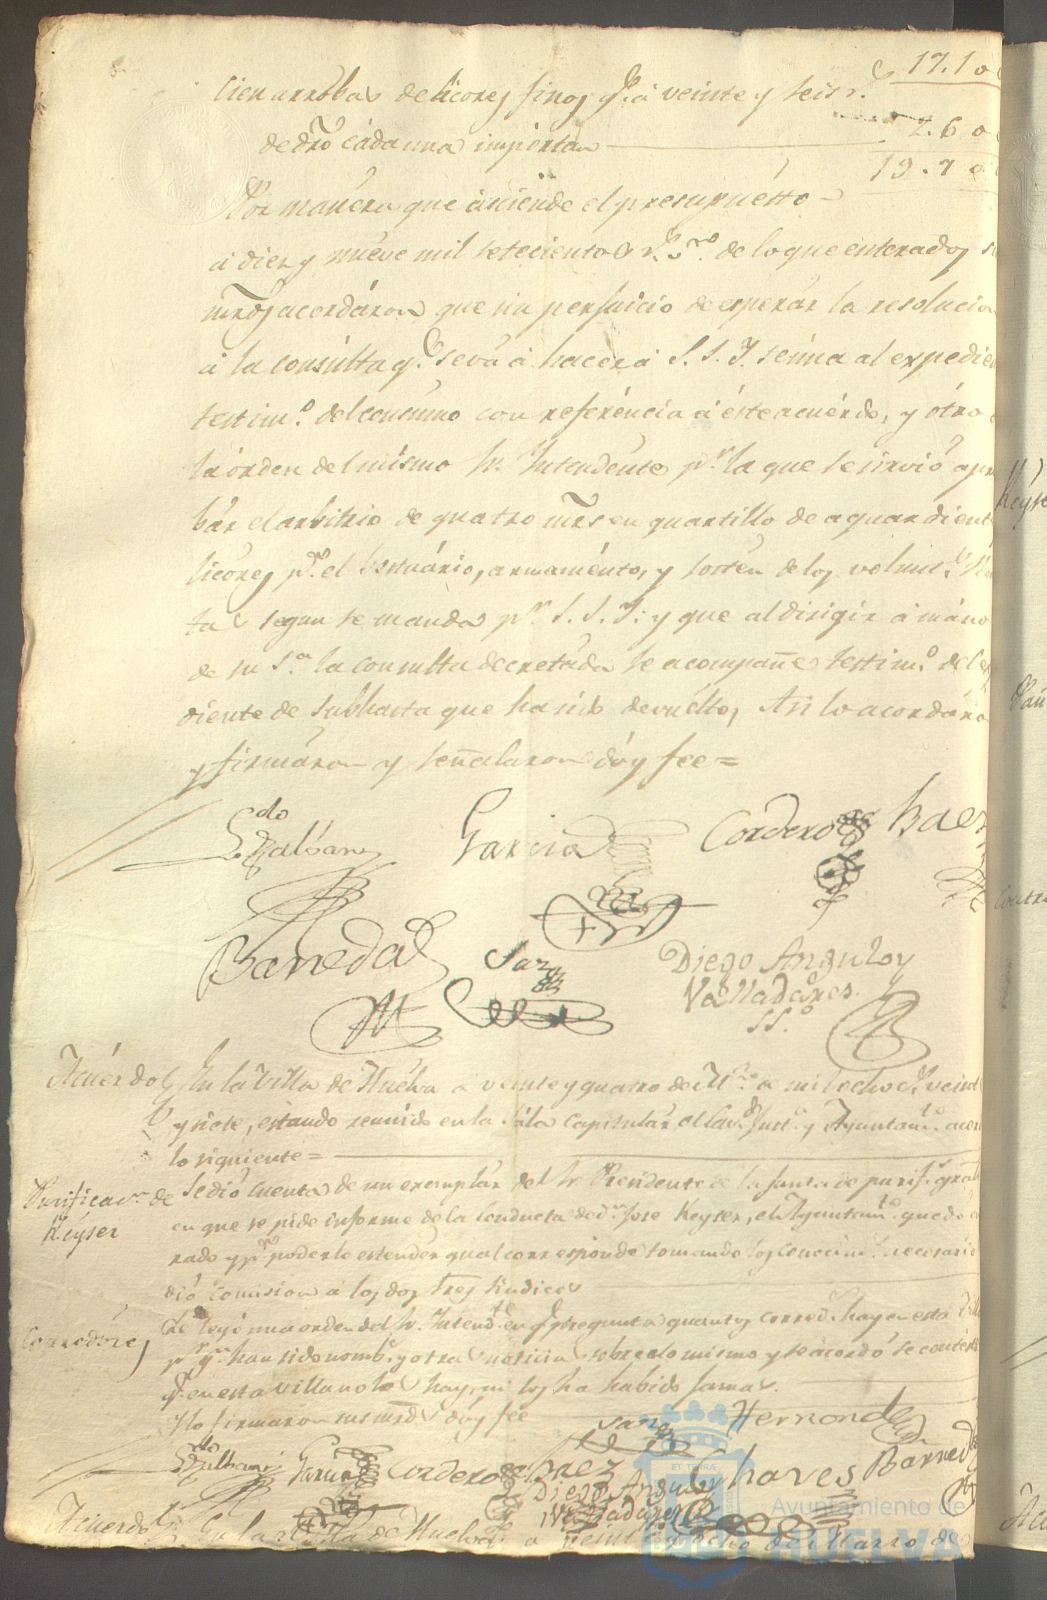 17.10
Cien arrobas de licores finos q.e á veinte y seis r.s
de dro cada una importan
2.60
19.70
Por manera que asciende el presupuesto
á diez y nueve mil setecientos r.s v.n de lo que enterados s
mrds acordáron que sin perjuicio de esperár la resolucion
á la consúlta q.e se vá á hacer á S. S. Y. se úna al expedien
testim.o del consúmo con referéncia á éste acuérdo, y ótro
la órden del mismo Sr. Intendente p.r la que se sirvió apro
bár el arbitrio de quatro mrs en quartillo de aguardiente
licóres p.a el Vestuário, armaménto, y sosten de los volunt.s
tas segun se manda p.r S. S. Y. y que al dirigir á máno
de su S.a la consulta decretáda se acompañe testim.o del es
diente de Subhasta que ha sido devuélto, Asi lo acordáro
y firmáron y señalaron dóy fee =
G.do Galban
Garcia
Cordero
Baez
Barreda
Saz
Diego Angulo y
Valladares.
SS.o
Acuérdo En la Villa de Huélva á veinte y quatro de M.zo a mil ocho c.s veint
y siete, estando reunido en la Sála Capitulár el Just.a y Ayuntam.to acor
lo siguiente =
Purificac.n de Keyser
Se dió cuenta de un exemplár del Sr Presidente de la Junta de purif.n
en que se pide informe de la conducta de d.n Jose Keyser, el Ayuntam.to quedó
rado y p.a poderlo estender qual corresponde tomando los conocim.s necesário
dió comision á los dos Sres Síndicos
Corredóres
Se leyó una orden del Sr. Intend.te en q.e pregunta quantos corred.s hay en esta Vill
p.r q.n han sido nomb.s y otras noticias sobre lo mismo y se acordó se conteste
q.e en esta villa no los hay, ni los ha habido jamas.
Y lo firmaron sus mrds dóy fee
Saz
Hernand
Galban
Garcia
Cordero
Baez
Chaves
Barreda
Diego Angulo y
Valladares
Acuerdo En la Villa de Huelva á veinte y ocho de Marzo de
Ayuntamiento de
HUELVA
Keyse
Acu